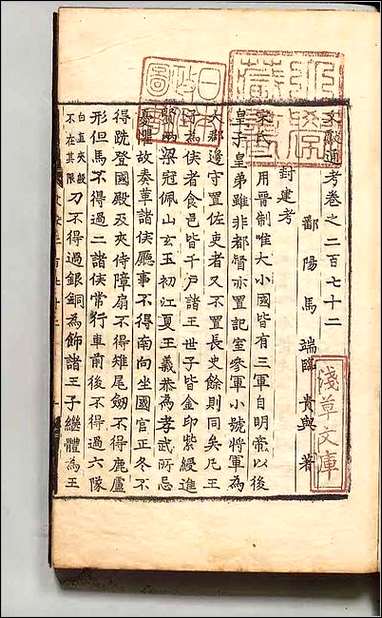 文獻通考卷之二百七十二
鄱陽馬端臨貴與著
封建考
宋氏一用晉制唯大小國皆有三軍自明帝以後
皇子皇弟雖非都督亦置記室參軍小號將軍為
大郡邊守置佐吏者又不置長史餘則同矣凡王
子為侯者食邑皆千戶諸王世子皆金印紫綬進
賢兩梁冠佩山玄玉初江夏王義恭為孝武所忌
憂懼故奏革諸侯廳事不得南向坐國官正冬不
得跣登國殿及夾侍障扇不得雉尾劒不得鹿盧
形但馬不得過二諸侯常行車前後不得過六隊
白直夾轂不在其限刀不得過銀銅為飾諸王子繼體為王
日本政圖
淺草文庫